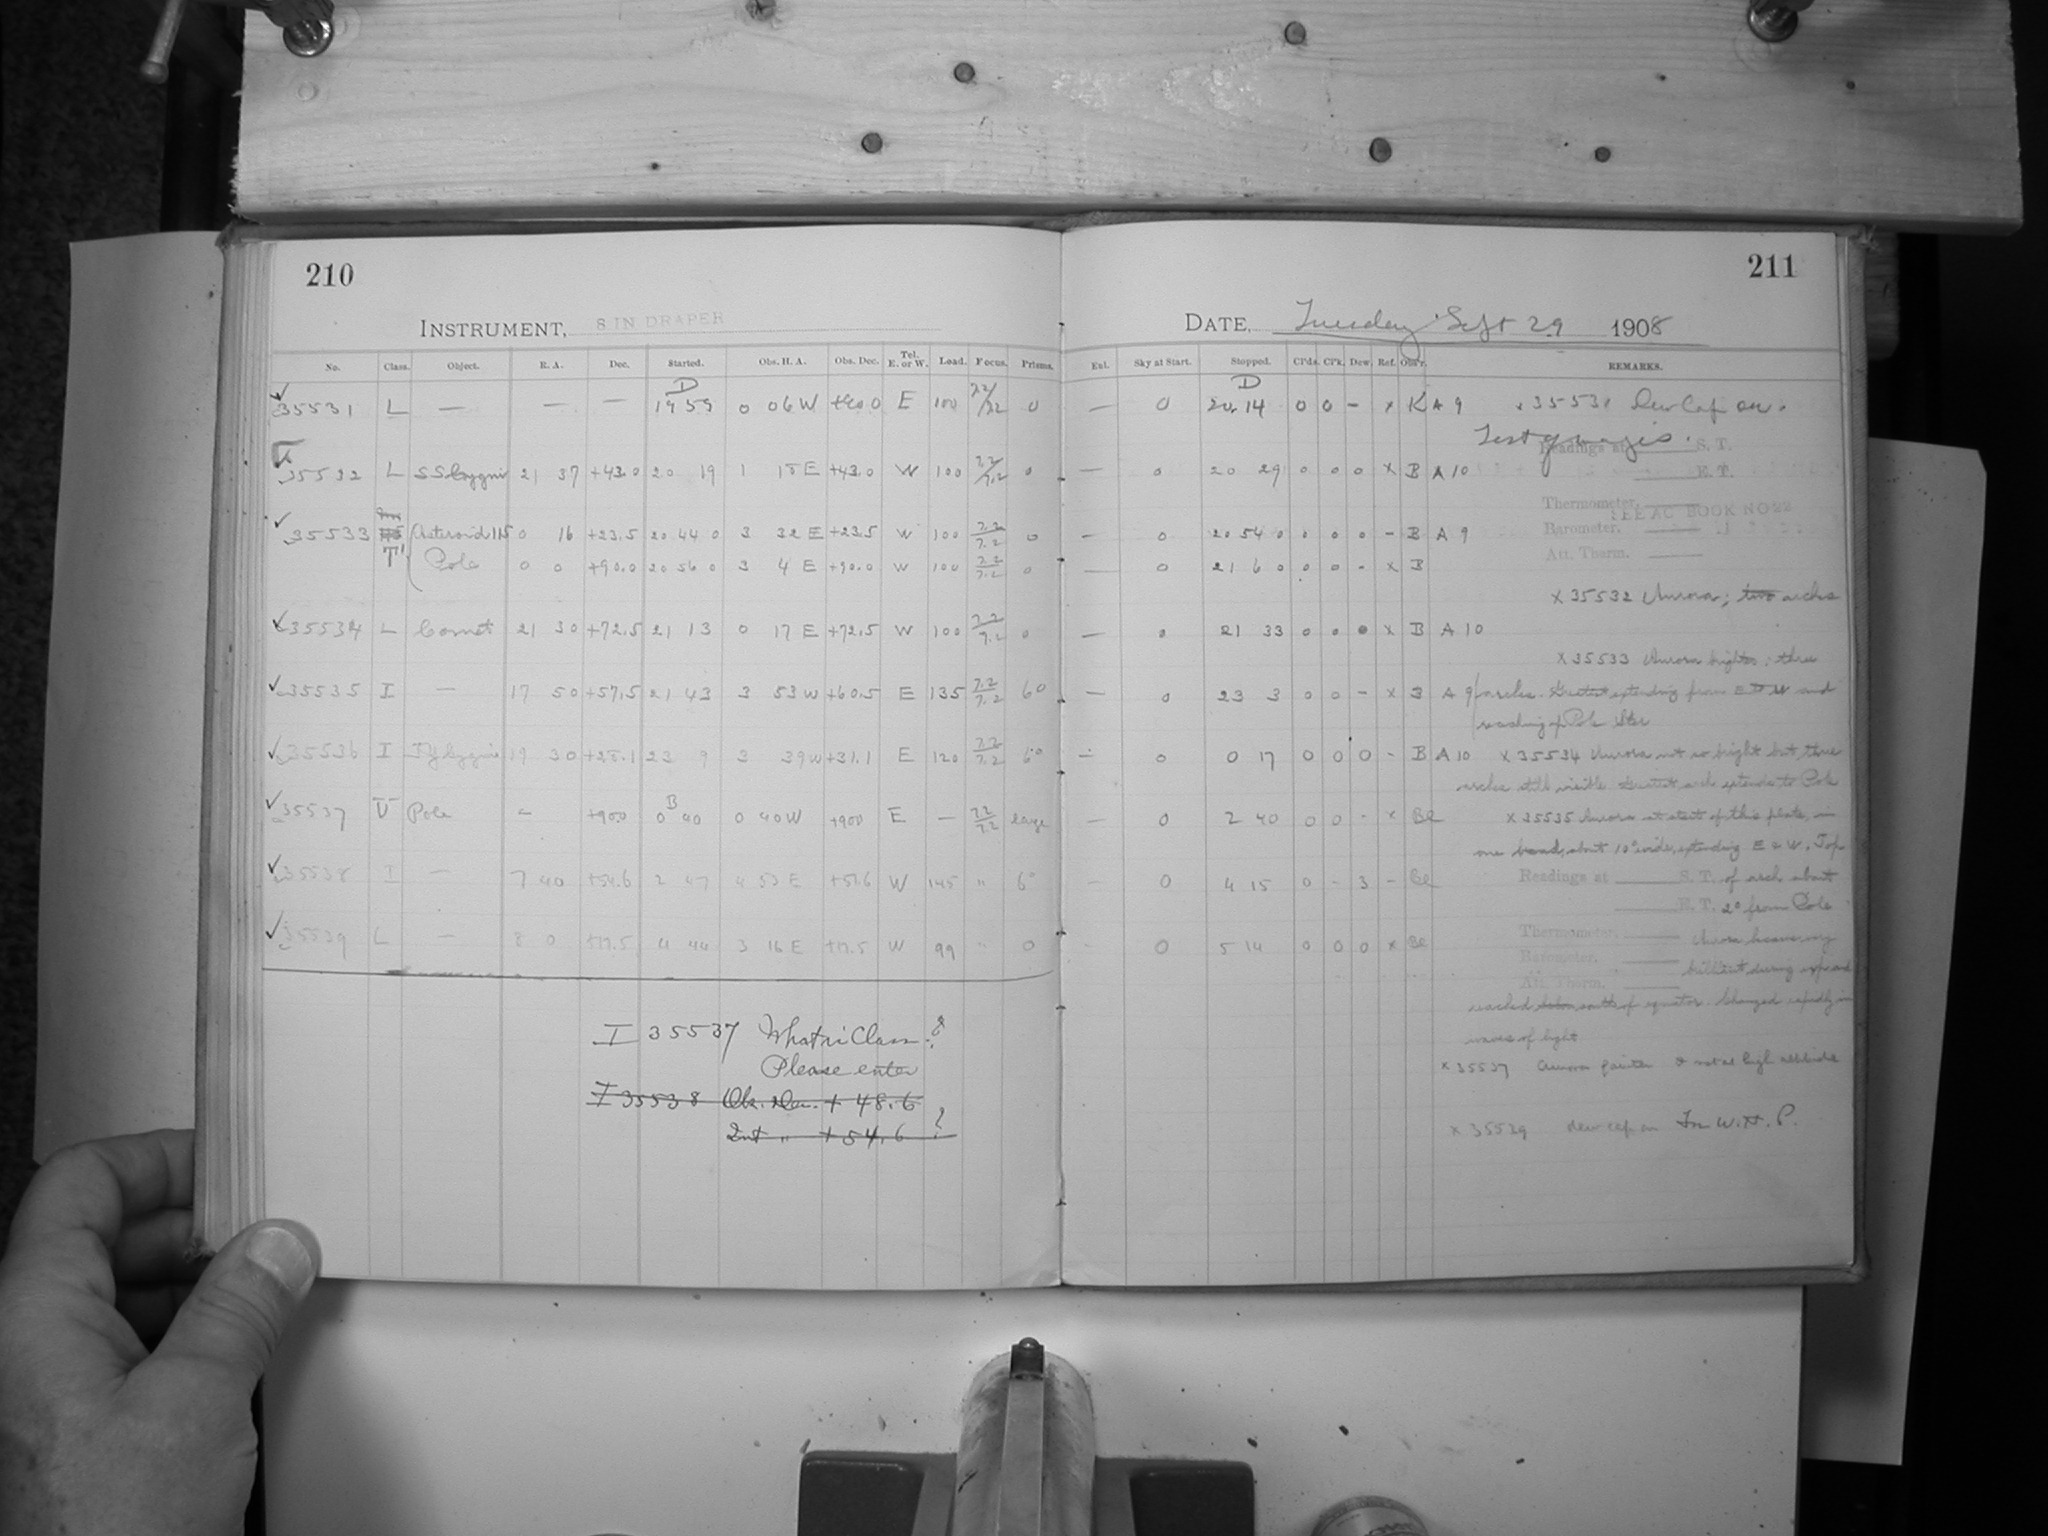 210
INSTRUMENT, 8 IN DRAPER
No. Class. Object. R. A. Dec. Started. Obs. H. A. Obs. Dec. Tel. E. or W. Lead. Focus. Prisms.
D
35531 L — — — 19 59 0 06 W E 100 0
35532 L SS Cygni 21 37 +43.0 20 19 1 18 E +43.0 W 100 7.2/7.2 0
35533 T Asteroid 115 0 16 +23.5 20 44 0 3 32 E +23.5 W 100 7.2/7.2 0
Pole 0 0 +90.0 20 56 0 3 4 E +90.0 W 100 7.2/7.2 0
35534 L Comet 21 30 +72.5 21 13 0 17 E +72.5 W 100 7.2/7.2 0
35535 I — 17 50 +57.5 21 43 3 53 W +60.5 E 135 7.2/7.2 6°
35536 I Cygni 19 30 23 9 3 39 W +31.1 E 120 7.2/7.2 6°
B
35537 Pole — +90.0 0 40 0 40 W +900 E — 7.2/7.2 large
35538 I — 7 40 +54.6 2 47 4 53 E +51.6 W 145 " 6°
35539 L — 8 0 +17.5 4 44 3 16 E +17.5 W 99 " 0
I 35537 What is Class?
Please enter
I 35538 Obs. Dec. + 48.6
Int " + 54.6 ?
211
DATE, Tuesday Sept 29 1908
Exl. Sky at Start. Stopped. Cl'ds. Cl'k. Dew. Ref. Obs'r. REMARKS.
D
— 0 20 14 0 0 - x K A 9 x 35531 Dew Cap on.
Readings at S. T.
— 0 20 29 0 0 0 x B A 10
E. T.
Thermometer.
SEE AC BOOK NO 22
— 0 20 54 0 0 0 0 - B A 9 Barometer.
Att. Therm.
— 0 21 6 0 0 0 - x B
x 35532 Aurora; two arches
— 0 21 33 0 0 0 x B A 10
x 35533 Aurora brighter; three
— 0 23 3 0 0 - x B A 9 arches. Greatest extending from E to W and
reaching Pole Star
— 0 0 17 0 0 0 - B A 10 x 35534 Aurora not so bright but three
arches still visible. Greatest arch extends to Pole
— 0 2 40 0 0 - x Bl x 35535 Aurora at start of this plate, in
one band, about 10° wide, extending E & W. Top
— 0 4 15 0 - 3 - Bl Readings at S. T. of arch about
E. T. 2° from Pole
Thermometer. Aurora became very
- 0 5 14 0 0 0 x Bl
Barometer. brilliant during exp and
Att. Therm.
reached south of equator. Changed rapidly in
waves of light
x 35537 Aurora fainter & not at high altitude
x 35539 dew cap on For W. H. P.